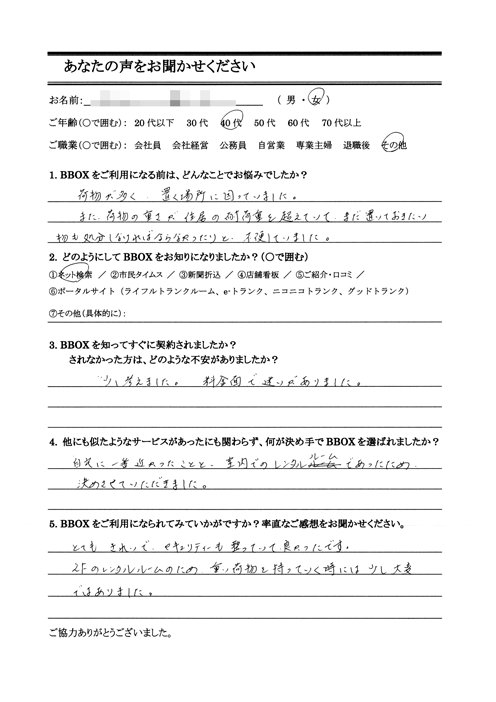 あなたの声をお聞かせください
お名前: ( 男 ・ 女 )
ご年齢(○で囲む): 20代以下 30代 40代 50代 60代 70代以上
ご職業(○で囲む): 会社員 会社経営 公務員 自営業 専業主婦 退職後 その他
1. BBOXをご利用になる前は、どんなことでお悩みでしたか?
荷物が多く、置く場所に困っていました。
また、荷物の重さが住居の耐荷重を超えていて、まだ置いておきたい
物も処分しなければならなかったりと、不便していました。
2. どのようにしてBBOXをお知りになりましたか?(○で囲む)
①ネット検索 / ②市民タイムス / ③新聞折込 / ④店舗看板 / ⑤ご紹介・口コミ /
⑥ポータルサイト (ライフルトランクルーム、e・トランク、ニコニコトランク、グッドトランク)
⑦その他(具体的に):
3. BBOXを知ってすぐに契約されましたか?
されなかった方は、どのような不安がありましたか?
少し考えました。 料金面で迷いがありました。
4. 他にも似たようなサービスがあったにも関わらず、何が決め手でBBOXを選ばれましたか?
自宅に一番近かったことと、室内でのレンタルルームであったため、
決めさせていただきました。
5. BBOXをご利用になられてみていかがですか?率直なご感想をお聞かせください。
とても きれいで、セキュリティーも整っていて良かったです。
2Fのレンタルルームのため 重い荷物を持っていく時には 少し大変
ではありました。
ご協力ありがとうございました。